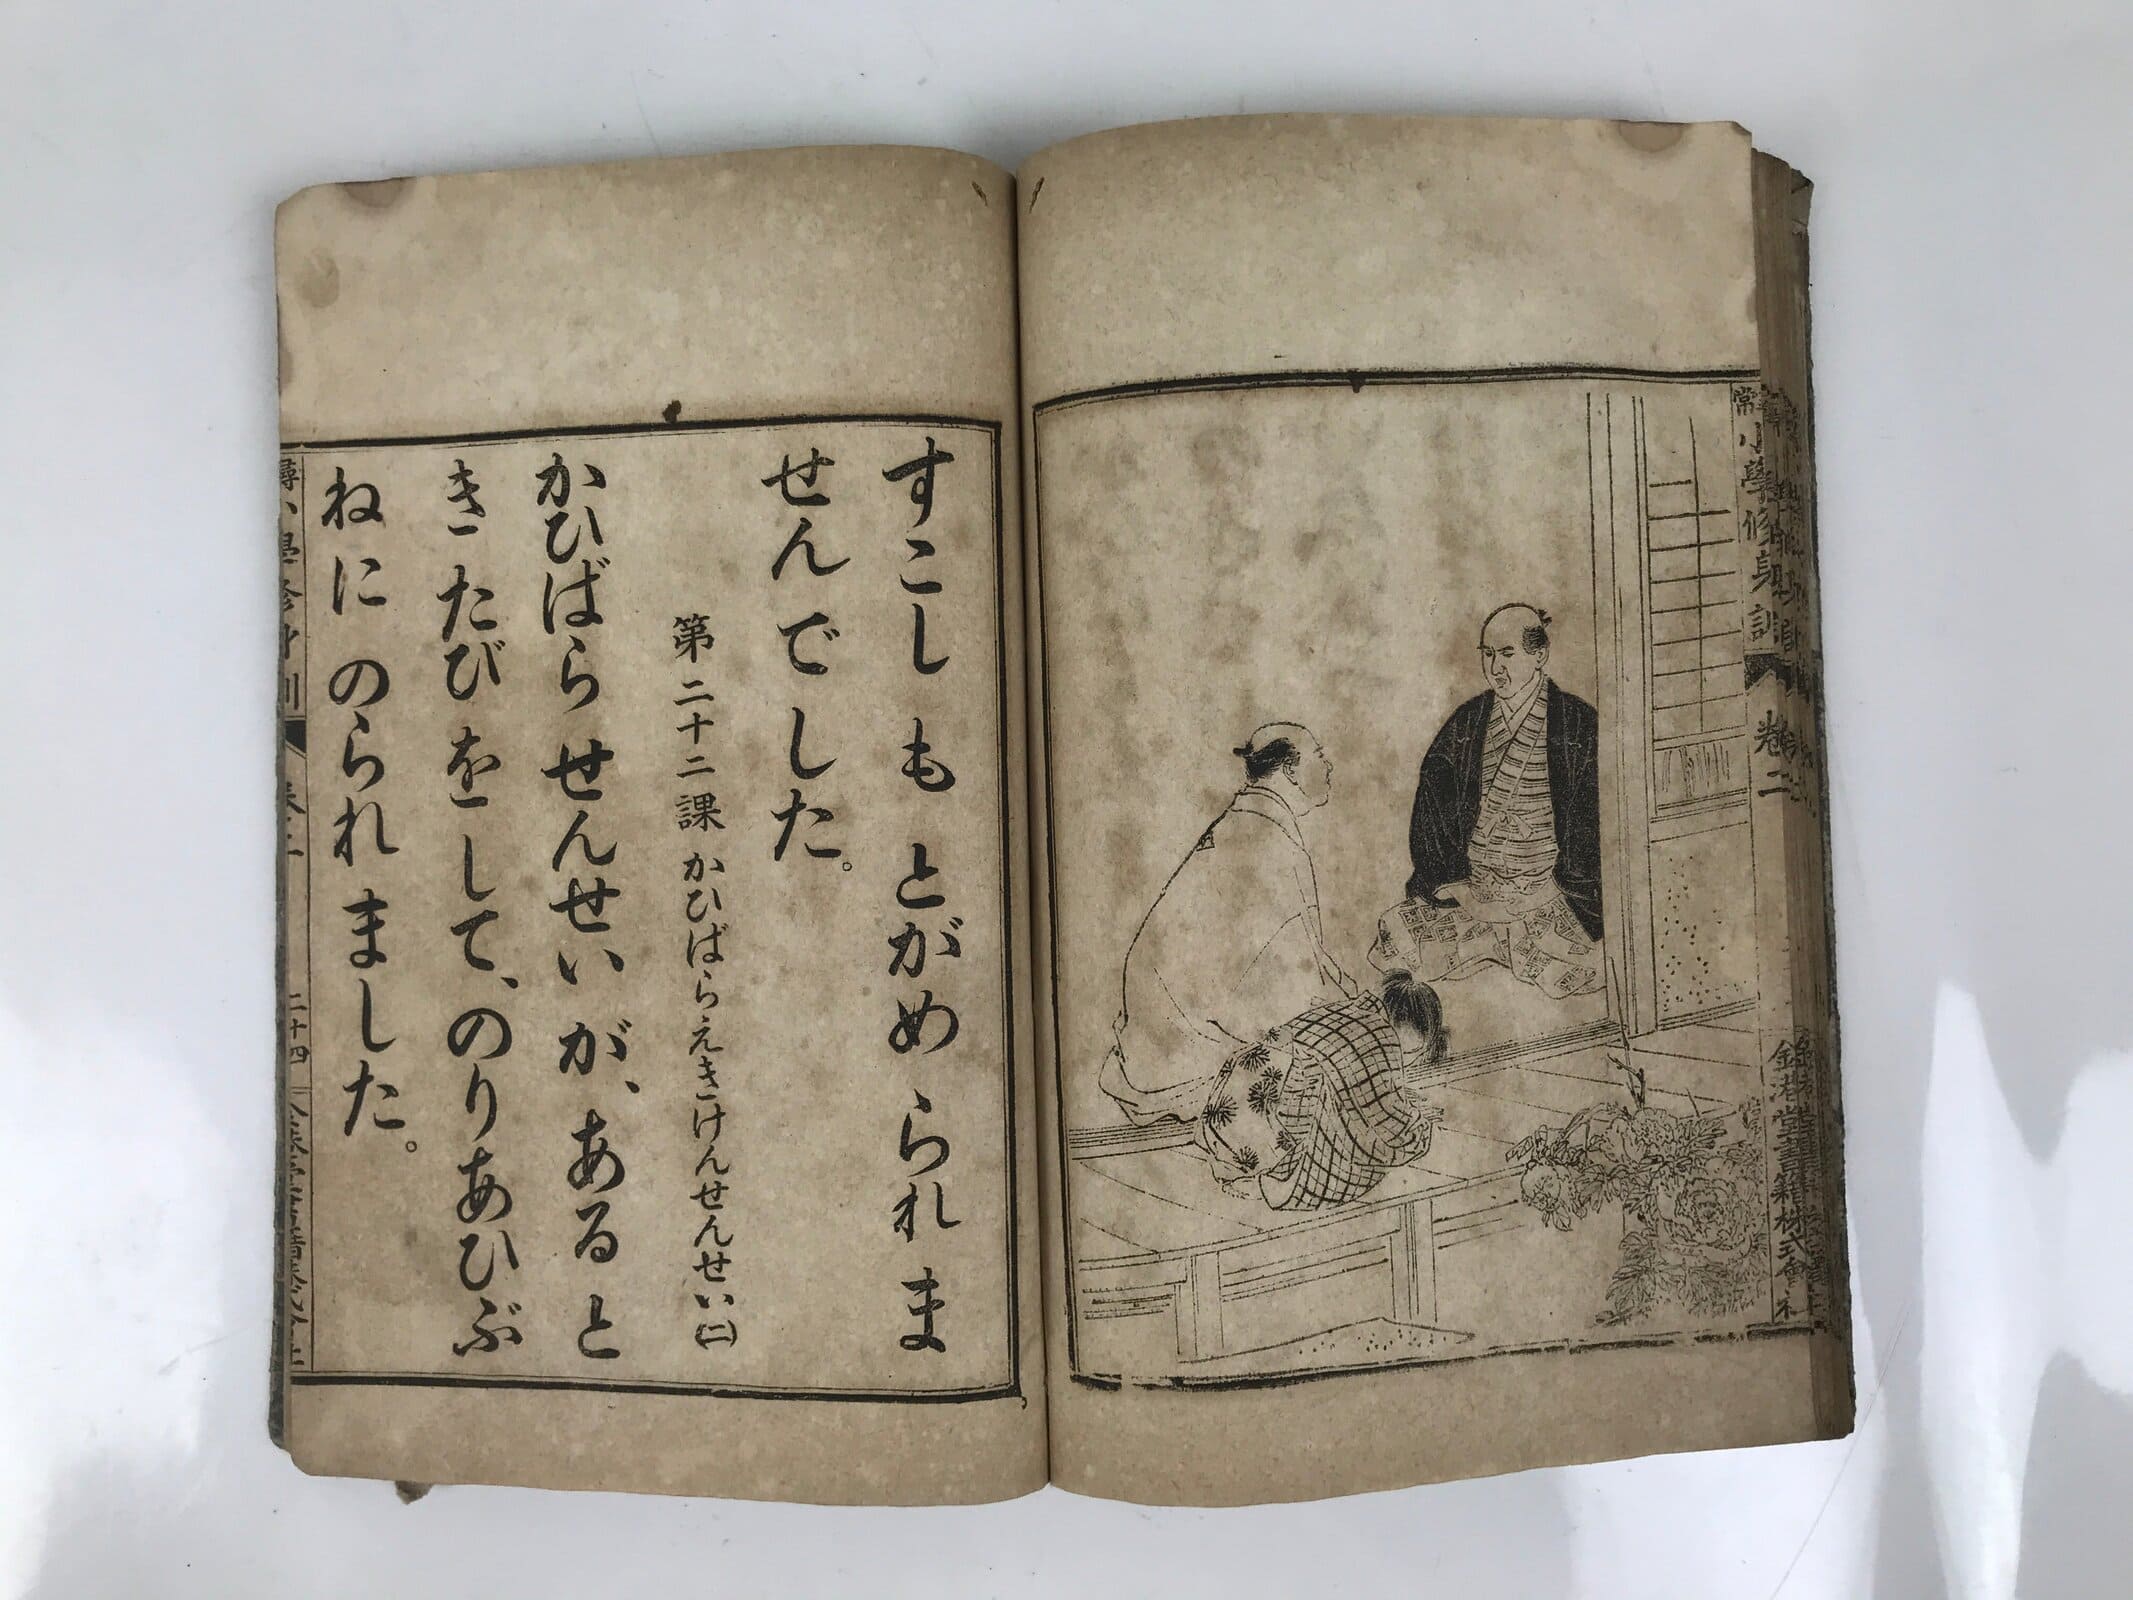 常小學修身訓
卷二
金港堂書籍株式會社
すこしもとがめられま
せんでした。
第二十二課 かひばらえきけんせんせい(二)
かひばらせんせいが、あると
きたびをして、のりあひぶ
ねにのられました。
二十四